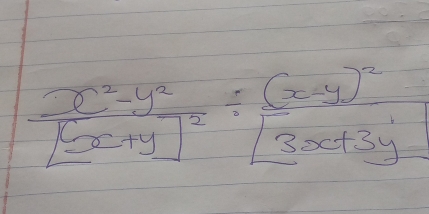 x² - y² / [x+y]² ÷ (x-y)² / [3x+3y